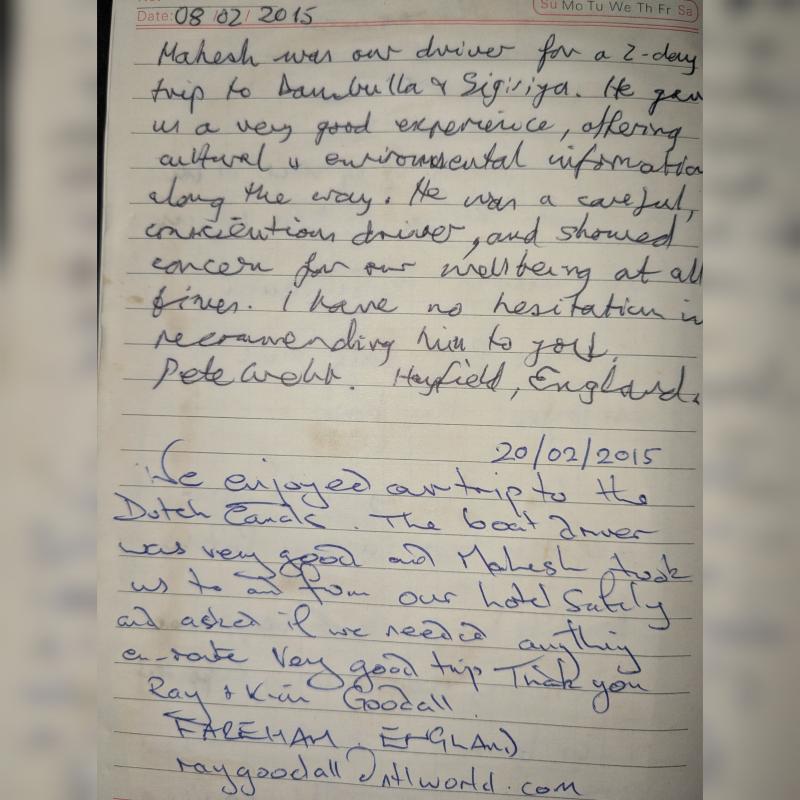 Date: 08/02/2015
Su Mo Tu We Th Fr Sa
Mahesh was our driver for a 2-day
trip to Dambulla & Sigiriya. He gav
us a very good experience, offering
cultural & environmental informatio
along the way. He was a careful,
conscientious driver, and showed
concern for our wellbeing at all
times. I have no hesitation in
recommending him to you.
Pete. Hayfield, England.
20/02/2015
We enjoyed our trip to the
Dutch Canals. The boat driver
was very good and Mahesh took
us to and from our hotel Safely
and asked if we needed anything
en-route Very good trip Thank you
Ray & Kim Goodall
FAREHAM ENGLAND
raygoodall@ntlworld.com